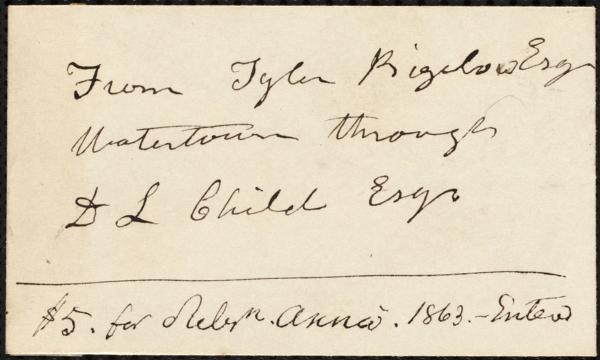 From Tyler Bigelow Esqr
Watertown through
D L Child Esqr
$5. for Rebn. Anna'. 1863.-Enterd